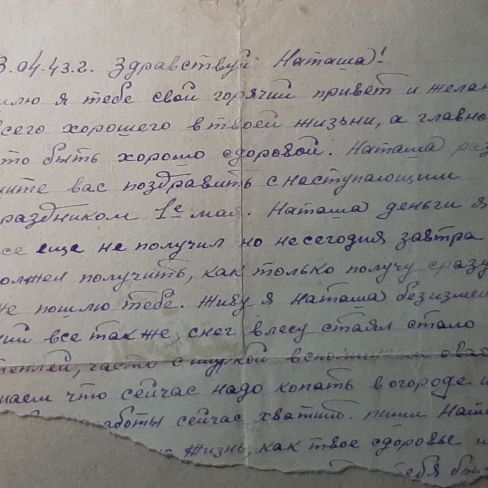 3.04.43.г. Здравствуй Наташа!
лю я тебе свой горячий привет и желан
сего хорошего в твоей жизьни, а главно
то быть хорошо здоровой. Наташа раз
шите вас поздравить с наступающим
раздником 1е мая. Наташа деньги я
се еще не получил но несегодня завтра
олжен получить, как только получу сразу
же пошлю тебе. Живу я Наташа безизмен
ний все так же, снег в лесу стаял стало
теплей, часто с шуркой вспоминаем
маем что сейчас надо копать в огороде и
работы сейчас хватит. пиши Ната
жизнь, как твое здоровье и
тебя бы